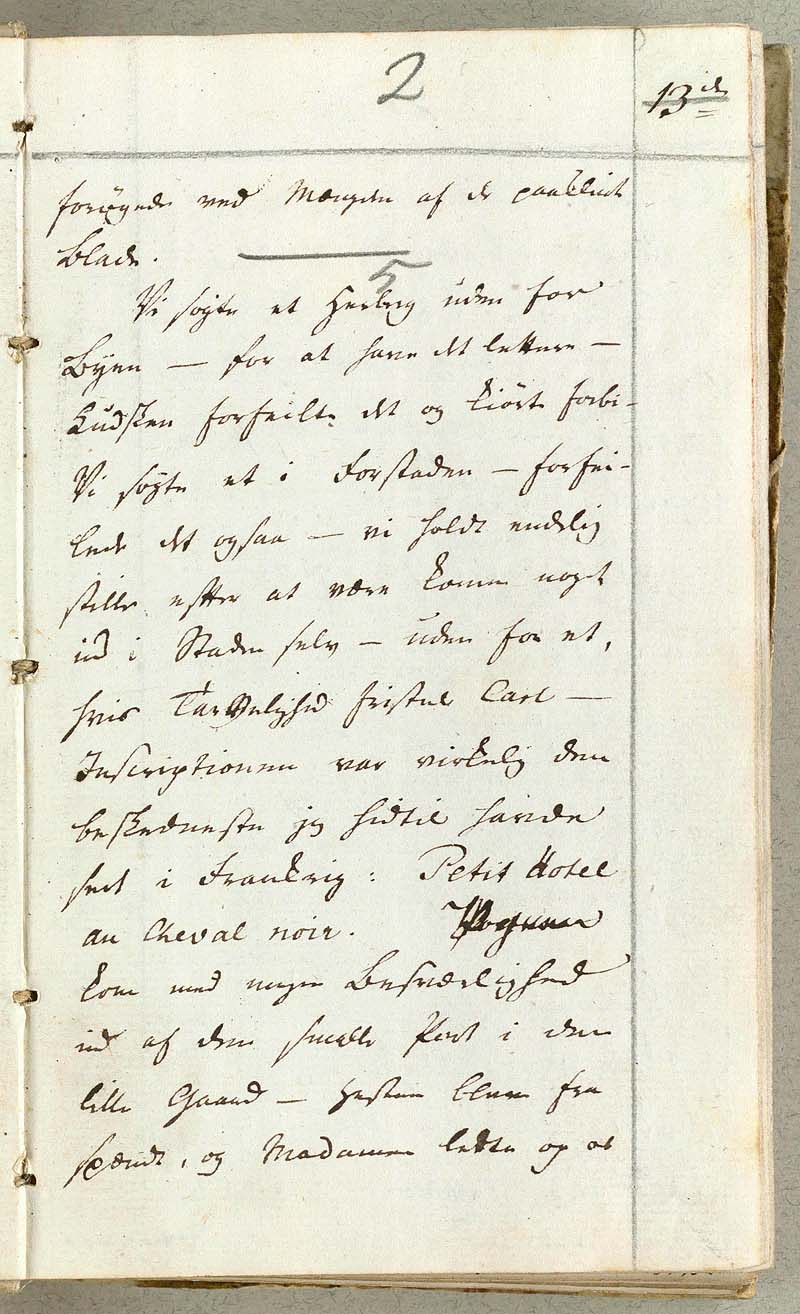 2
13de
forøgede ved Mængden af de
Blade.
5
Vi søgte et Herberg uden for
Byen — for at have det lettere —
Kudsken forfeilte det og kiørte forbi —
Vi søgte et i Forstaden — forfei-
lede det ogsaa — vi holdt endelig
stille efter at være komne noget
ind i Staden selv — uden for et,
hvis Tarvelighed fristede Carl —
Inscriptionen var virkelig den
beskedneste jeg hidtil havde
seet i Frankrig: Petit Hotel
au Cheval noir. Vognen
kom med megen Besværlighed
ind af den smalle Port i den
lille Gaard — Hestene bleve fra
spændt, og Madamen ledte op os